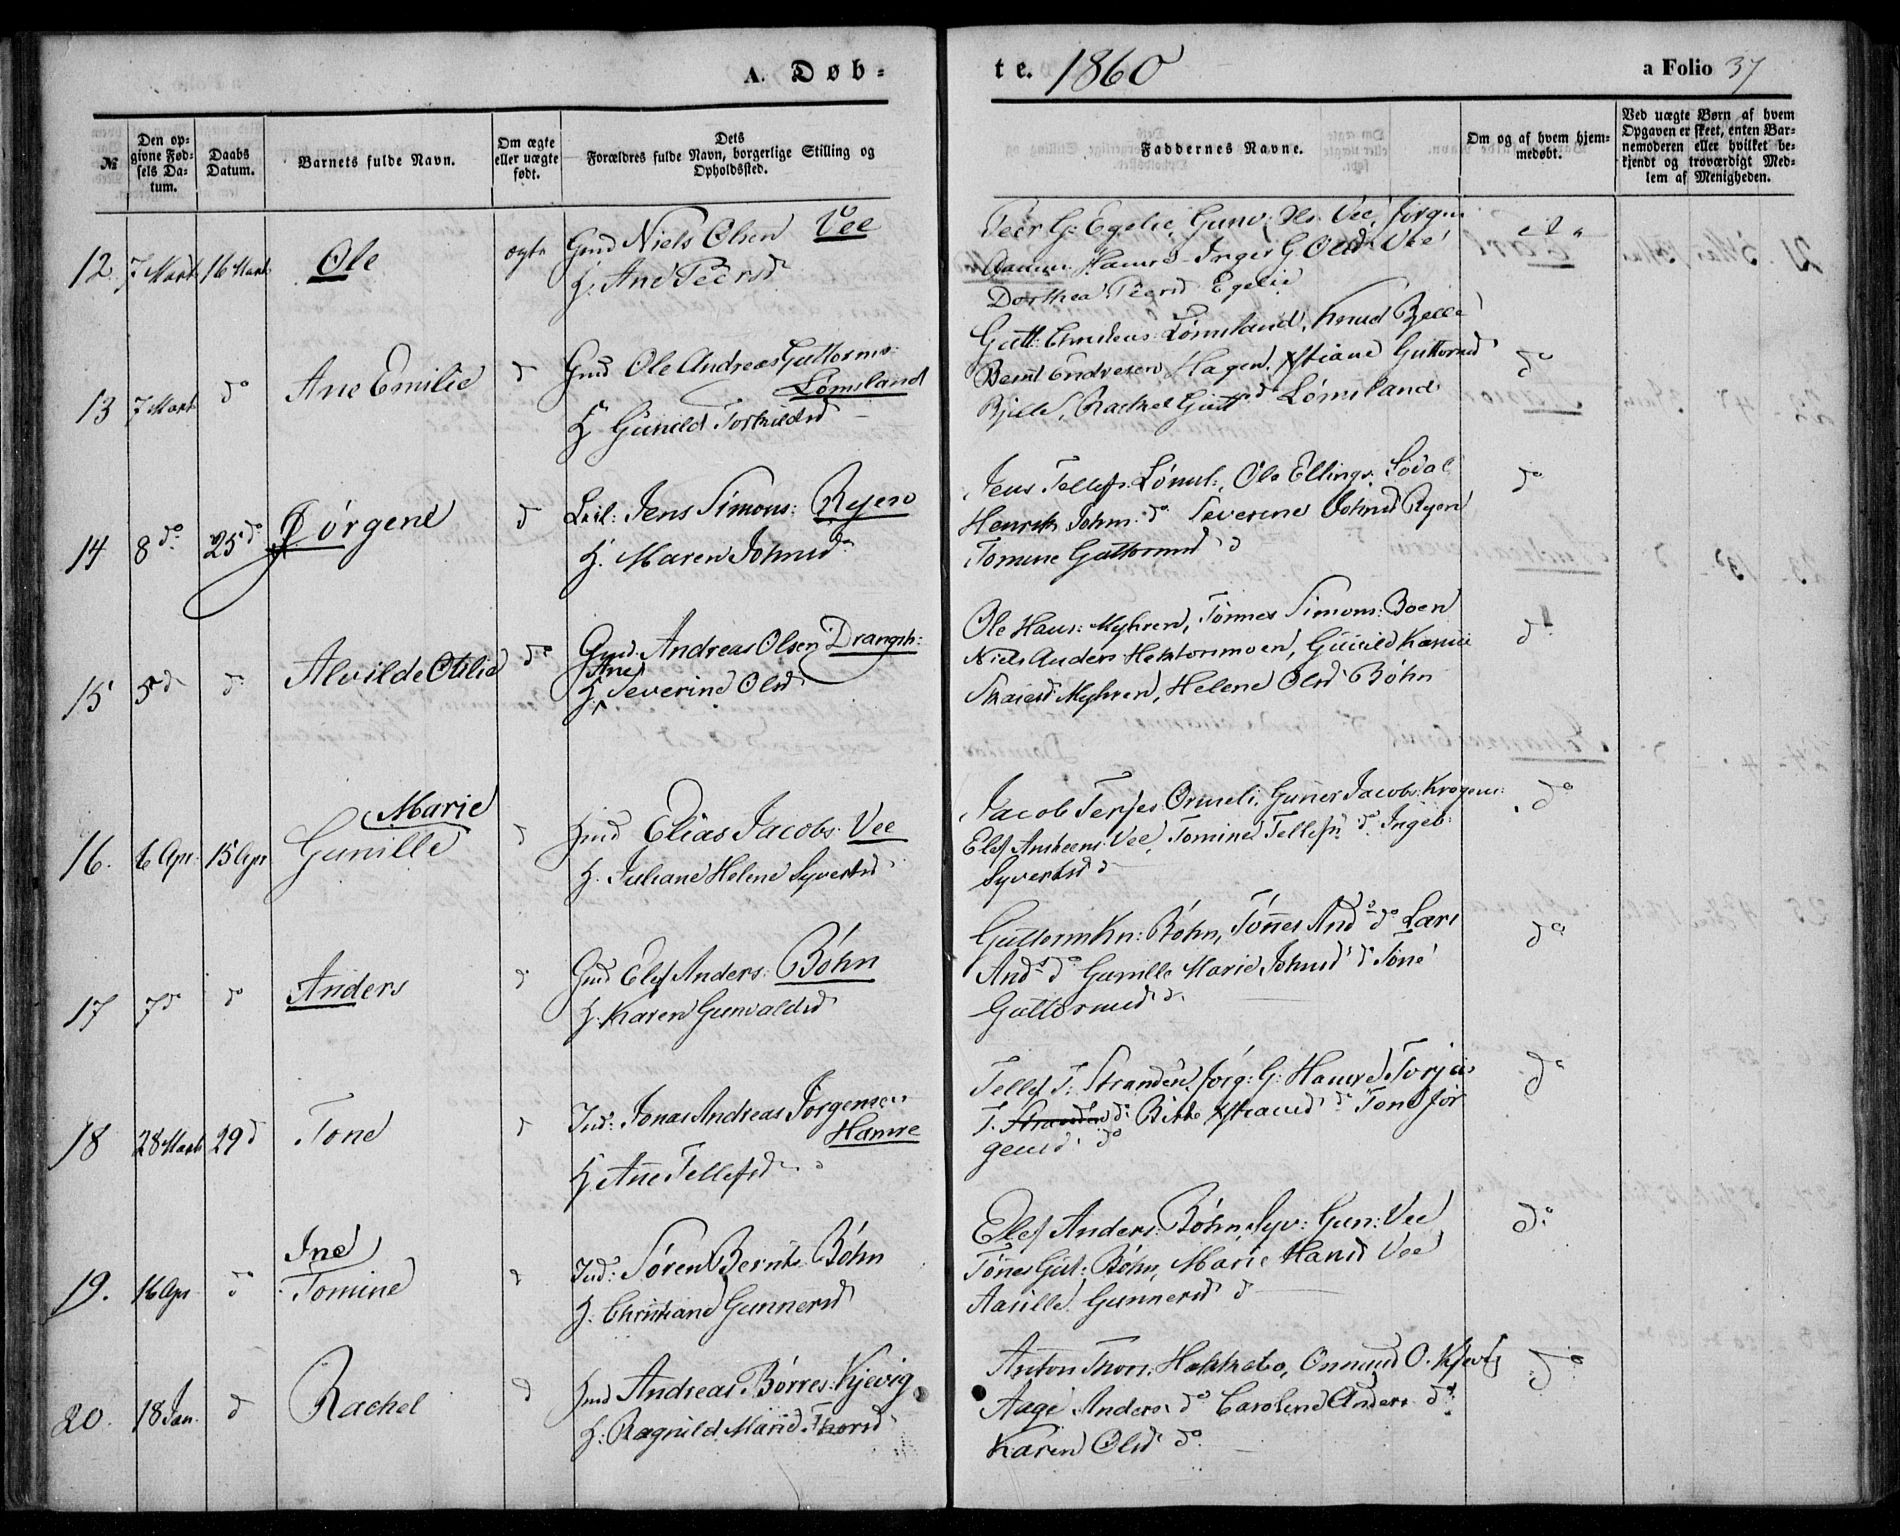 A. Døb-
te. 1860
a Folio 37
№
Den op-
givne Fød-
sels Da-
tum.
Daabs
Datum.
Barnets fulde Navn.
Om ægte
eller uægte
født.
Dets
Forældres fulde Navn, borgerlige Stilling og
Opholdssted.
Faddernes Navne.
Om og af hvem hjem-
medøbt.
Ved uægte Børn af hvem
Opgaven er skeet, enten Bar-
nemoderen eller hvilket be-
kjendt og troværdigt Med-
lem af Menigheden.
12. 7 Marts 16 Marts Ole ægte Gmd Niels Olsen Vee
H. Ane Peersd
Peer G: Egelie, Gunv: Ols: Vee, Jørgen
Hamre Inger G Olsd Vee
Dorthea Peersd Egelie
13 7 Marts do Ane Emilie d Gmd Ole Andreas Guttorms:
Lømsland
H Gunild Torkildsd
Gutt: Christens: Lømsland, Knud Bjelle
Bernt Endresen Hagen, Xtiane Guttormsd
Bjelle, Rachel Guttd Lømsland
do
14 8 do 25 do Jørgene d Leil: Jens Simons: Ryen
H. Maren Johnsd
Jens Tellefs Lømsl:, Ole Ellings: Sødal
Henrik Johns: do Severine Johnsd Ryen
Tomine Guttormsd d
do
15 5 d d Alvilde Otilie do Gmd: Andreas Olsen Drangsh:
Ane
H. Severine Olsd
Ole Hans: Myhren, Tønnes Simons: Boen
Niels Anders Hektormoen, Gunild Karine
Myhren, Helene Olsd Bøhn
do
16. 6 Apr. 15 Apr Marie
Gunille d Gmd Elias Jacobs: Vee
H. Juliane Helene Syvertsd
Jacob Terjes: Ormeli, Gunner Jacobs: Krogem:
Elef Ansteens: Vee, Tomine Tellefsd d. Ingeb:
Syvertsd d
do
17 7 d do Anders d Gmd Elef Anders: Bøhn
H. Karen Gunvaldsd
Guttorm Kn: Bøhn, Tønnes And: do Lars
And: do Gunille Marie Johnsd d Tone
Guttormsd d.
do
18 28 Marts 29 d Tone d Ind: Jonas Andreas Jørgensen
Hamre
H. Ane Tellefsd
Tellef T: Stranden, Jørg: G: Hamre, Torjus
T. Stranden d: Xtiansd d. Tone Jør
gensd do
do
19. 16 Apr do Ine
Tomine d Ind: Søren Bernts: Bøhn
H. Christiane Gunnersd
Elef Anders: Bøhn, Syv: Gun: Vee
Tønes Gut: Bøhn, Marie Hansd Vee
Aasille Gunnersd d
do
20. 18 Jan. d Rachel d Gmd Andreas Børres: Kjevig
H. Ragnild Marie Thorsd
Anton Thors: Hakkebo, Onnund O. Kjevig
Aage Anders: do Caroline Anders do
Karen Olsd do.
do